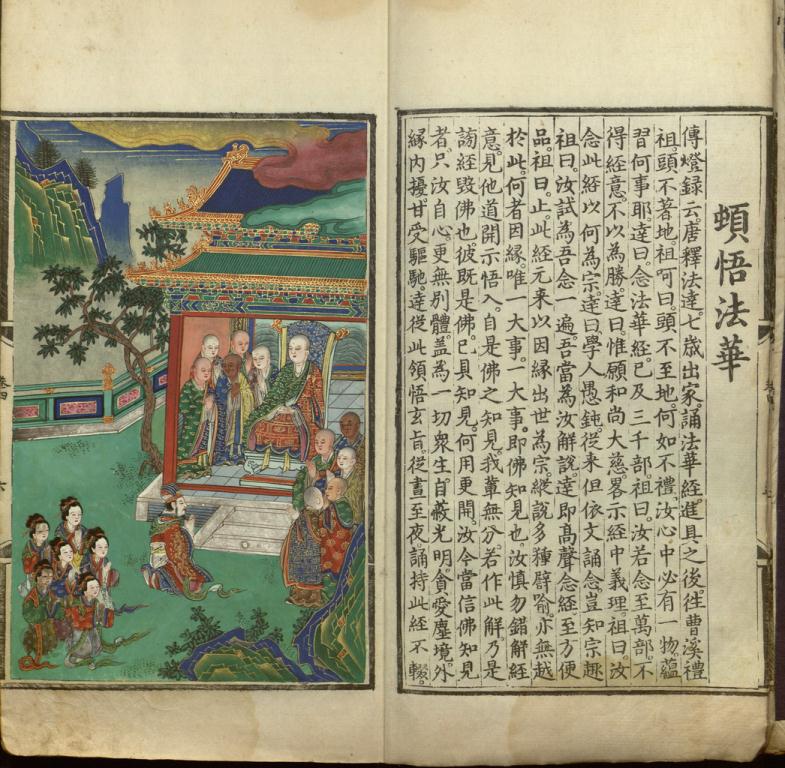 頓悟法華
傳燈録云。唐釋法達。七歲出家。誦法華經。進具之後。徃曹溪禮
祖。頭不著地。祖呵曰。頭不至地。何如不禮。汝心中必有一物。藴
習何事耶。達曰。念法華經。已及三千部。祖曰。汝若念至萬部。不
得經意。不以為勝。達曰。惟願和尚大慈。畧示經中義理。祖曰。汝
念此經以何為宗。達曰。學人愚鈍。從来但依文誦念。豈知宗趣
祖曰。汝試為吾念一遍。吾當為汝解說。達即高聲念經。至方便
品。祖曰。止。此經元来以因緣出世為宗。縱說多種譬喻。亦無越
於此。何者因緣。唯一大事。一大事。即佛知見也。汝慎勿錯解經
意。見他道開示悟入。自是佛之知見。我輩無分。若作此解。乃是
謗經毀佛也。彼既是佛。已具知見。何用更開。汝今當信佛知見
者。只汝自心。更無別體。盖為一切衆生。自蔽光明。貪愛塵境。外
緣內擾。甘受驅馳。達從此領悟玄旨。從晝至夜。誦持此經不輟。
卷四
六